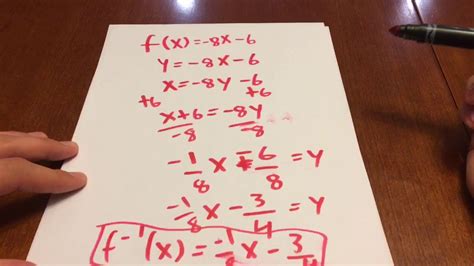 f(x)=-8x-6
y=-8x-6
x=-8y-6
+6 +6
x+6=-8y
-8 -8
-1/8 x - 6/8 = y
-1/8 x - 3/4 = y
f⁻¹(x)=-1/8 x - 3/4